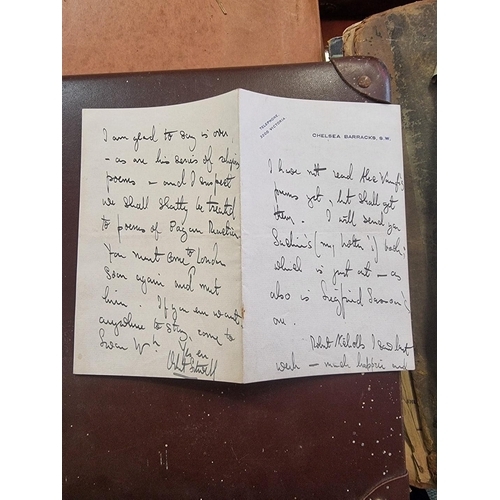 TELEPHONE,
VICTORIA
CHELSEA BARRACKS, S.W.
I have not read Alec Waugh's
poems yet, but shall get
them. I will send you
(my brother's) book,
which is just out — as
also is Siegfried Sassoon's
one.
Robert Nichols I saw last
week — much happier and
I am glad to say is over
— as are his series of religious
poems — and I suspect
we shall shortly be treated
to poems of Pagan
You must come to London
soon again and meet
him. If you ever want
anywhere to stay, come to
Swan Wk.
Yrs ever
Osbert Sitwell